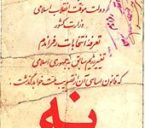 دولت موقت انقلاب اسلامی
وزارت کشور
تعرفه انتخابات رفراندم
تغییر رژیم سابق به جمهوری اسلامی
که قانون اساسی آن از تصویب ملت خواهد گذشت
نه